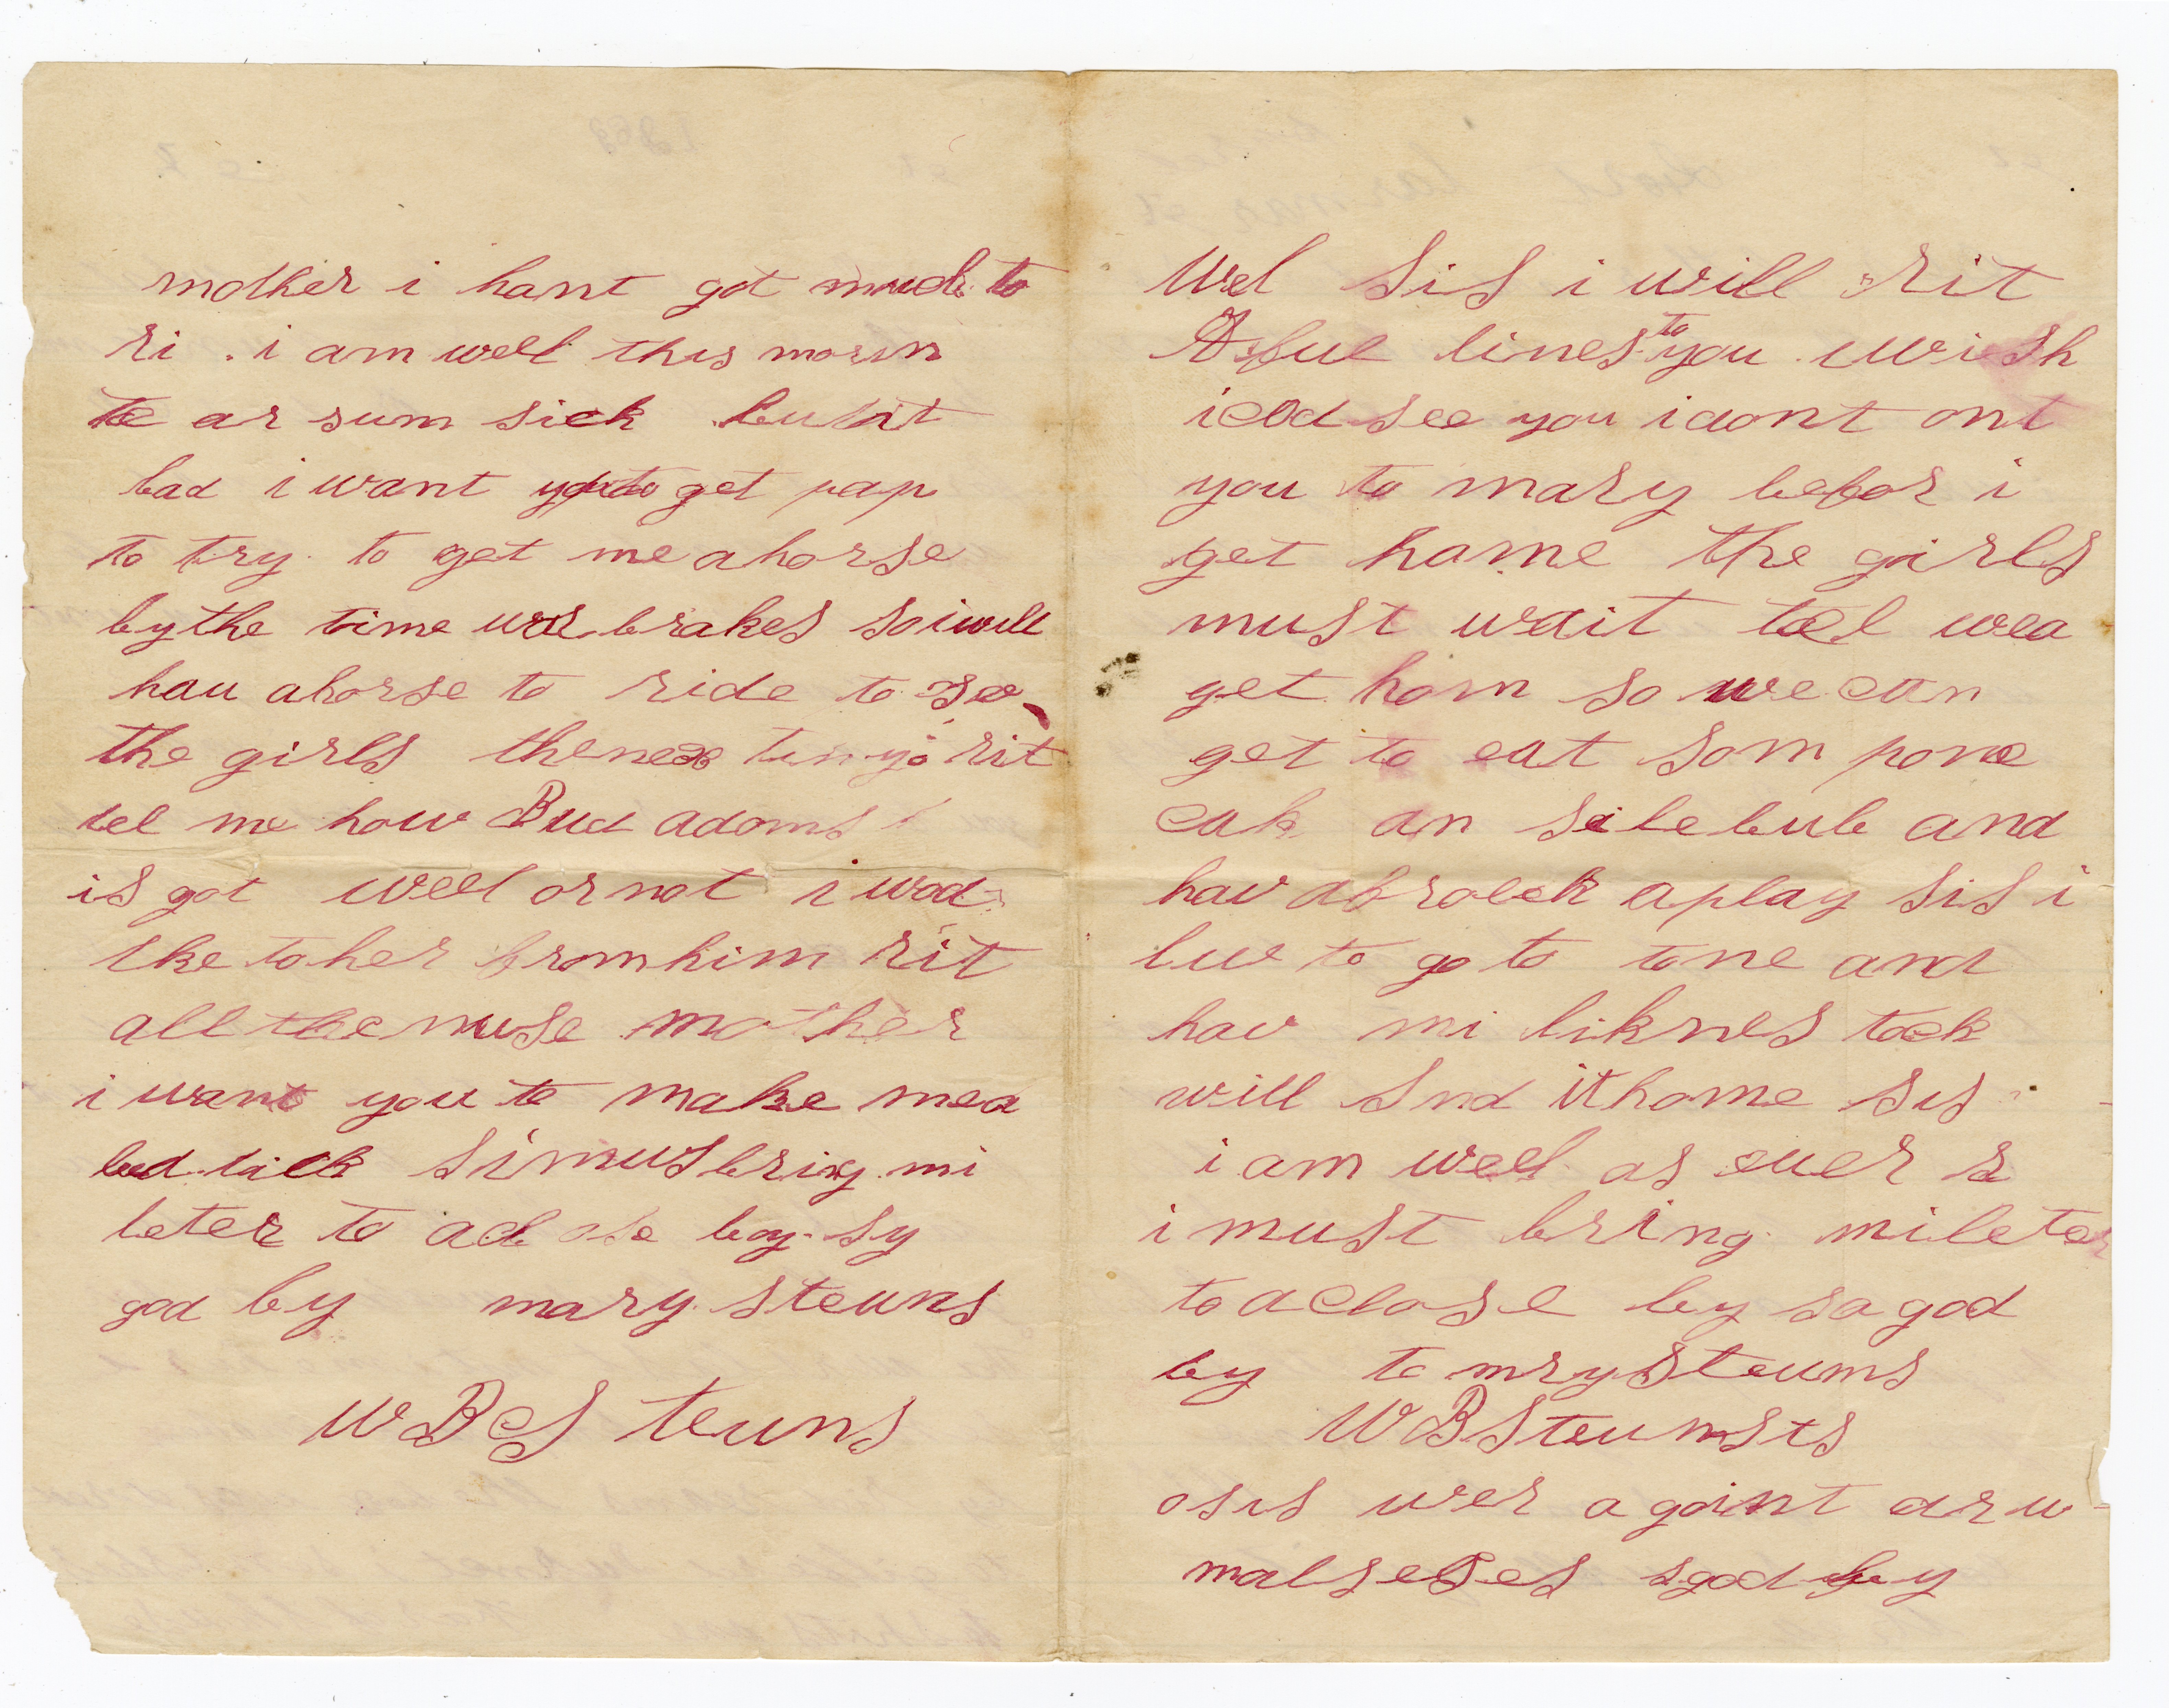 mother i hant got much to
ri . i am well this morin
te ar sum sick but nt
bad i want you to get pap
to try to get me a horse
by the time wor brakes so i will
hau a horse to ride to see
the girls the nex tim yo rit
tel me how Bud adams
is got well or not i wod
like to her from him rit
all the nuse mother
i want you to make me a
bed tick si mus bring mi
leter to a close by sy
god by mary steuns
W B Steuns
Wel Sis i will rit
A fue lines to you i wish
i cod see you i dont ont
you to mary befor i
get home the girls
must wait tel wea
get hom so we can
get to eat som pone
cak an sile bub and
hav a frolek a play sis i
to go to tone and
hav mi liknes tock
will snd it home sis
i am well as euer
i must bring mi leter
to a close by sa god
by to mry Steuns
W B Steuns
o sis wer a goint ar
mal seses god by